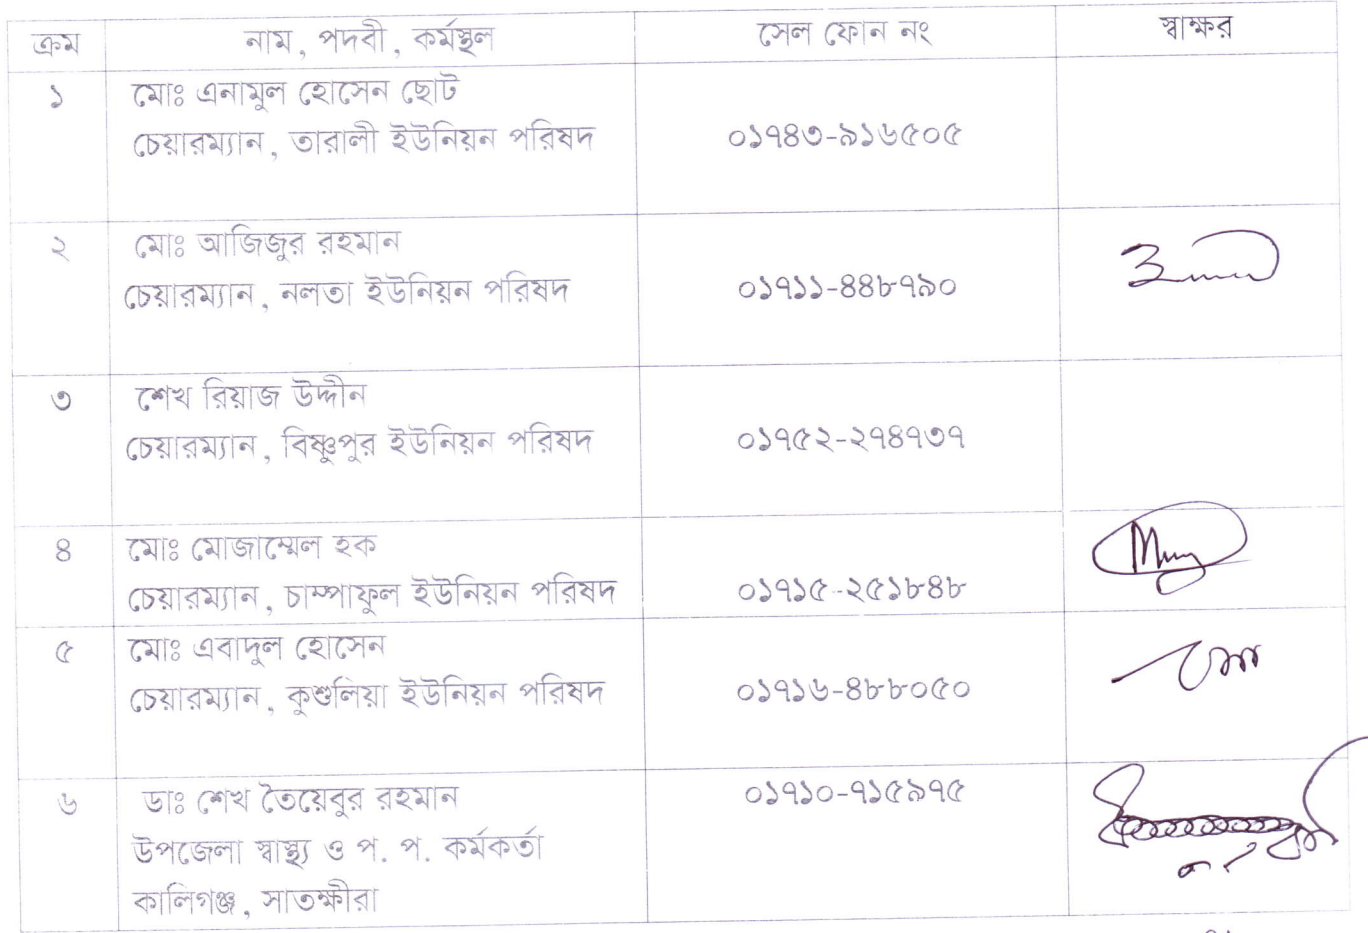 ক্রম নাম, পদবী, কর্মস্থল সেল ফোন নং স্বাক্ষর
১ মোঃ এনামুল হোসেন ছোট
চেয়ারম্যান, তারালী ইউনিয়ন পরিষদ ০১৭৪৩-৯১৬৫০৫
২ মোঃ আজিজুর রহমান
চেয়ারম্যান, নলতা ইউনিয়ন পরিষদ ০১৭১১-৪৪৮৭৯০
৩ শেখ রিয়াজ উদ্দীন
চেয়ারম্যান, বিষ্ণুপুর ইউনিয়ন পরিষদ ০১৭৫২-২৭৪৭৩৭
৪ মোঃ মোজাম্মেল হক
চেয়ারম্যান, চাম্পাফুল ইউনিয়ন পরিষদ ০১৭১৫-২৫১৮৪৮
৫ মোঃ এবাদুল হোসেন
চেয়ারম্যান, কুশুলিয়া ইউনিয়ন পরিষদ ০১৭১৬-৪৮৮০৫০
৬ ডাঃ শেখ তৈয়েবুর রহমান ০১৭১০-৭১৫৯৭৫
উপজেলা স্বাস্থ্য ও প. প. কর্মকর্তা
কালিগঞ্জ, সাতক্ষীরা